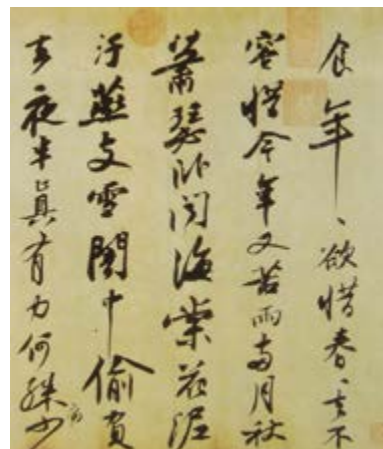 食年〻欲惜春〻去不
容惜今年又苦雨兩月秋
蕭瑟卧聞海棠花泥
汙燕支雪闇中偷負
去夜半真有力何殊少